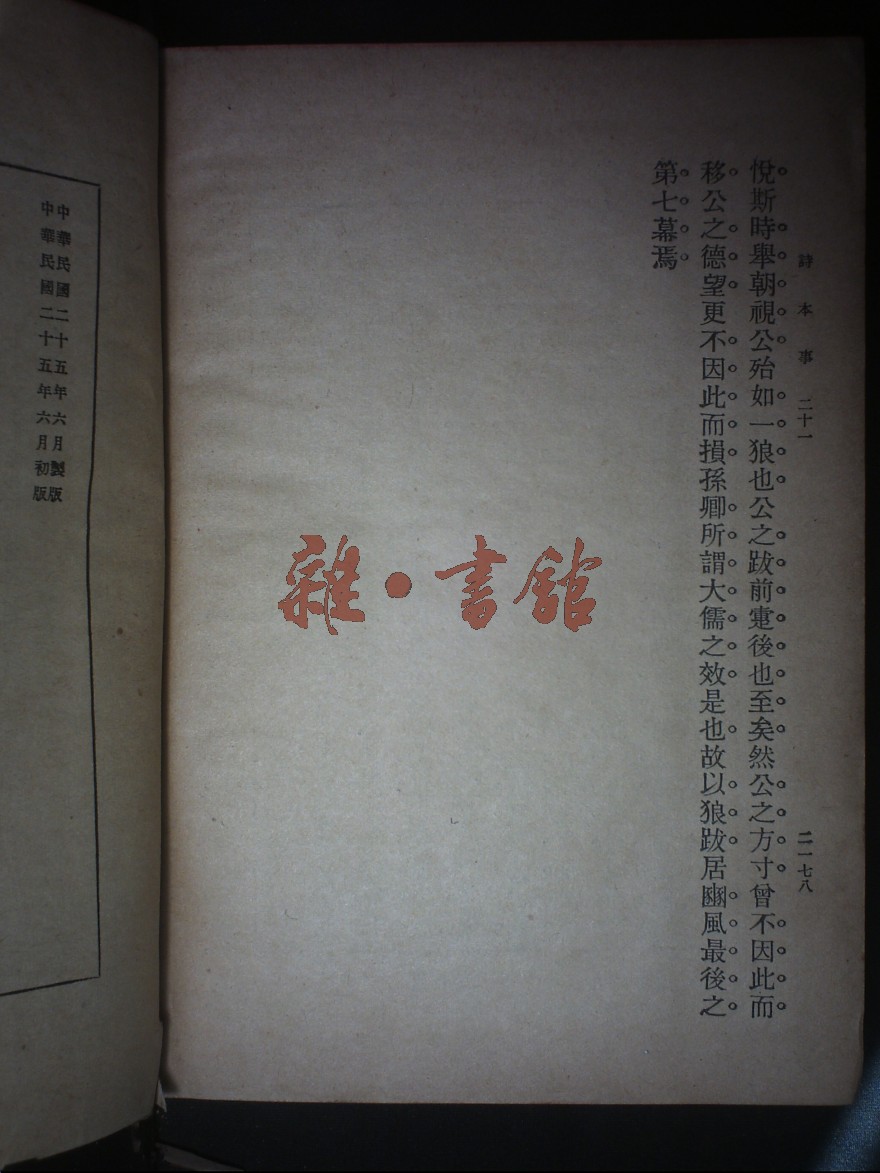 詩本事 二十一 二一七八
悅斯時舉朝視公殆如一狼也公之跋前疐後也至矣然公之方寸曾不因此而
移公之德望更不因此而損孫卿所謂大儒之效是也故以狼跋居豳風最後之
第七幕焉
雜·書館
中華民國二十五年六月製版
中華民國二十五年六月初版